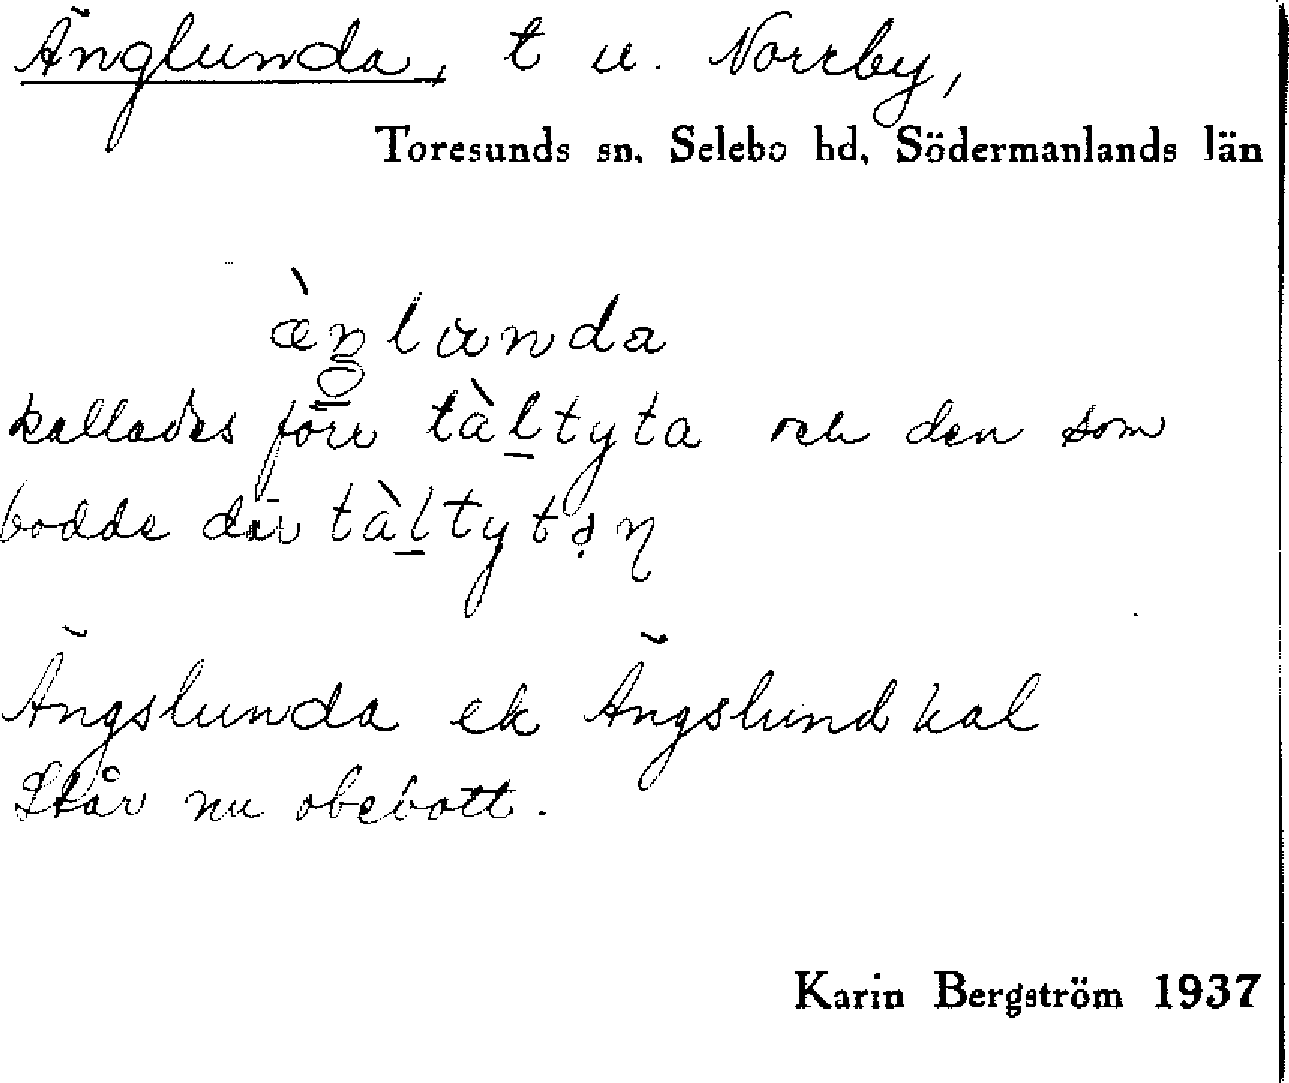 Änglunda, t u. Norrby,
Toresunds sn. Selebo hd, Södermanlands län
æ̀ŋlunda
kallades förr tàl̠tyta och den som
bodde där tàl̠tytəṇ
Ängslunda ek Ängslund kal
Står nu obebott.
Karin Bergström 1937